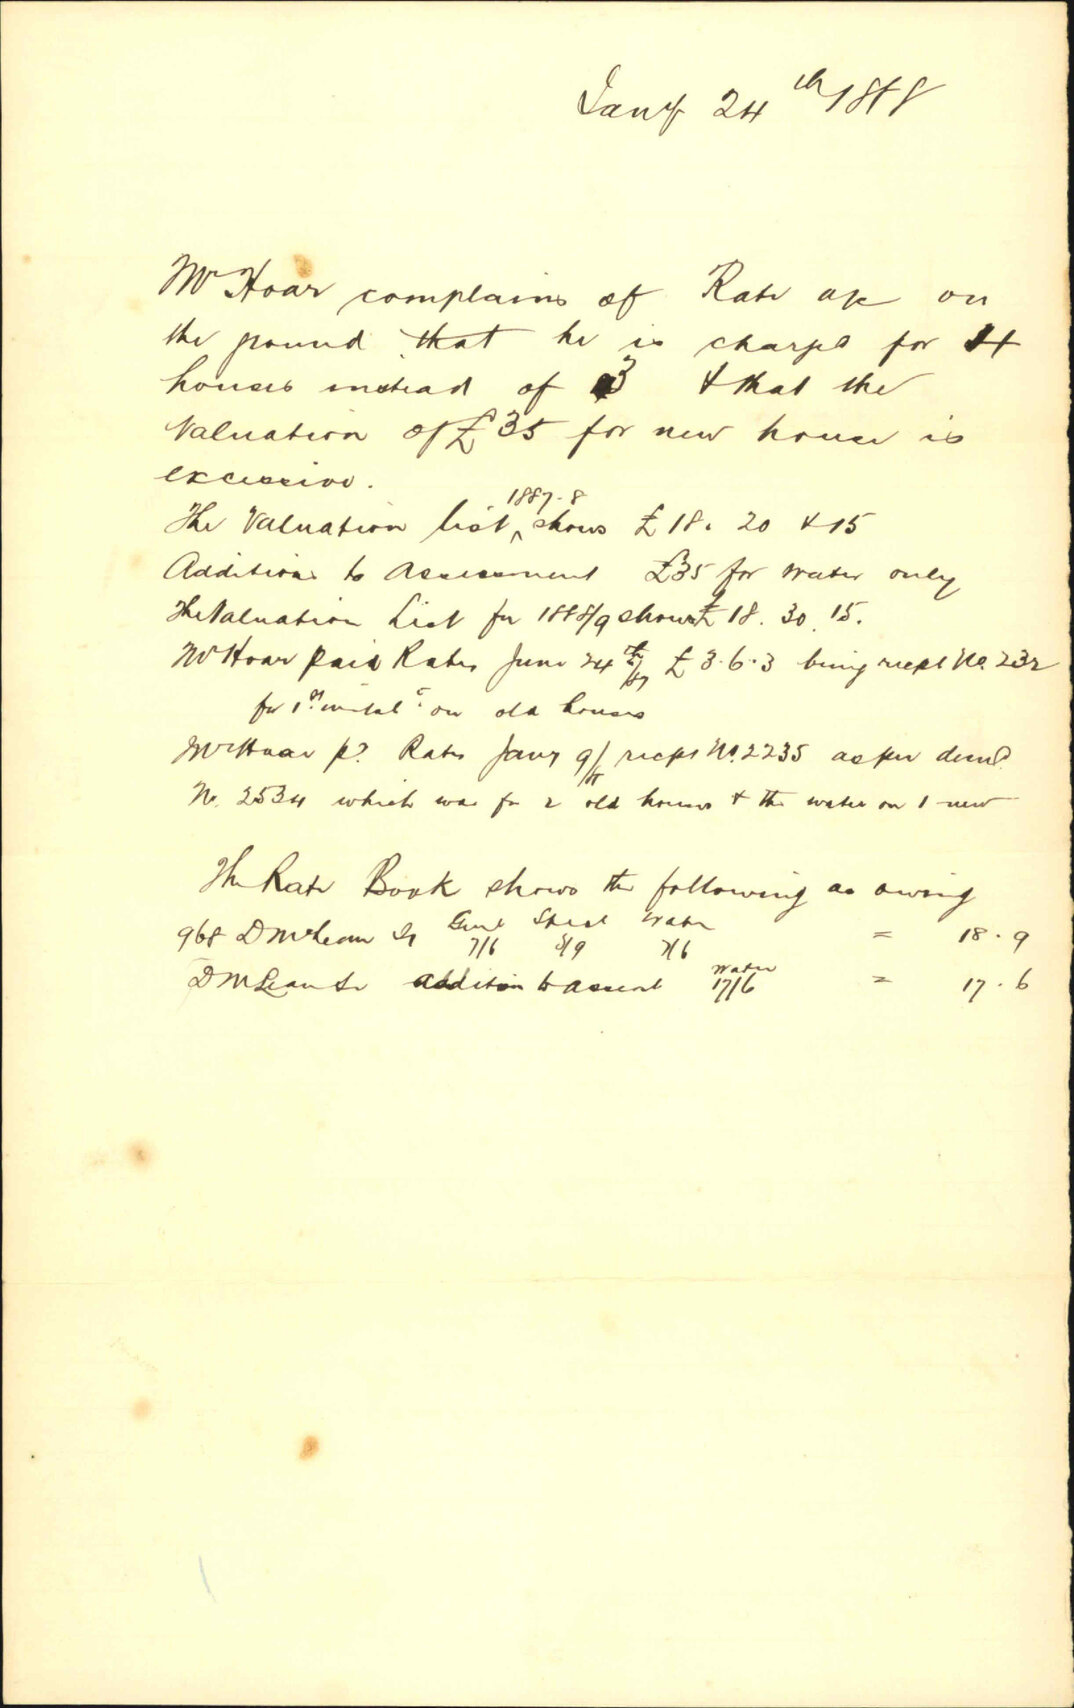 Jany 24th 1888
Mr Hoar complains of Rate on
the pound that he is charged for 4
houses instead of 3 & that the
Valuation of £35 for new house is
excessive.
The Valuation list ^ 1887-8 shows £18. 20 & 15
Additions to Assessment £35 for water only
The Valuation List for 1888/9 shows £18. 30. 15.
Mr Hoar paid Rates June 24th/87 £3.6.3 being recpt No. 232
for 1st instalt on old houses
Mr Hoar pd Rates Jany 9/88 recpt No. 2235 as per demd
No. 2534 which was for 2 old houses & the water on 1 new
The Rate Book shows the following as owing
Genl Specl Water
968 D McLean Sr 7/6 3/9 7/6 = 18.9
Water
D McLean Sr addition to assent 17/6 = 17.6